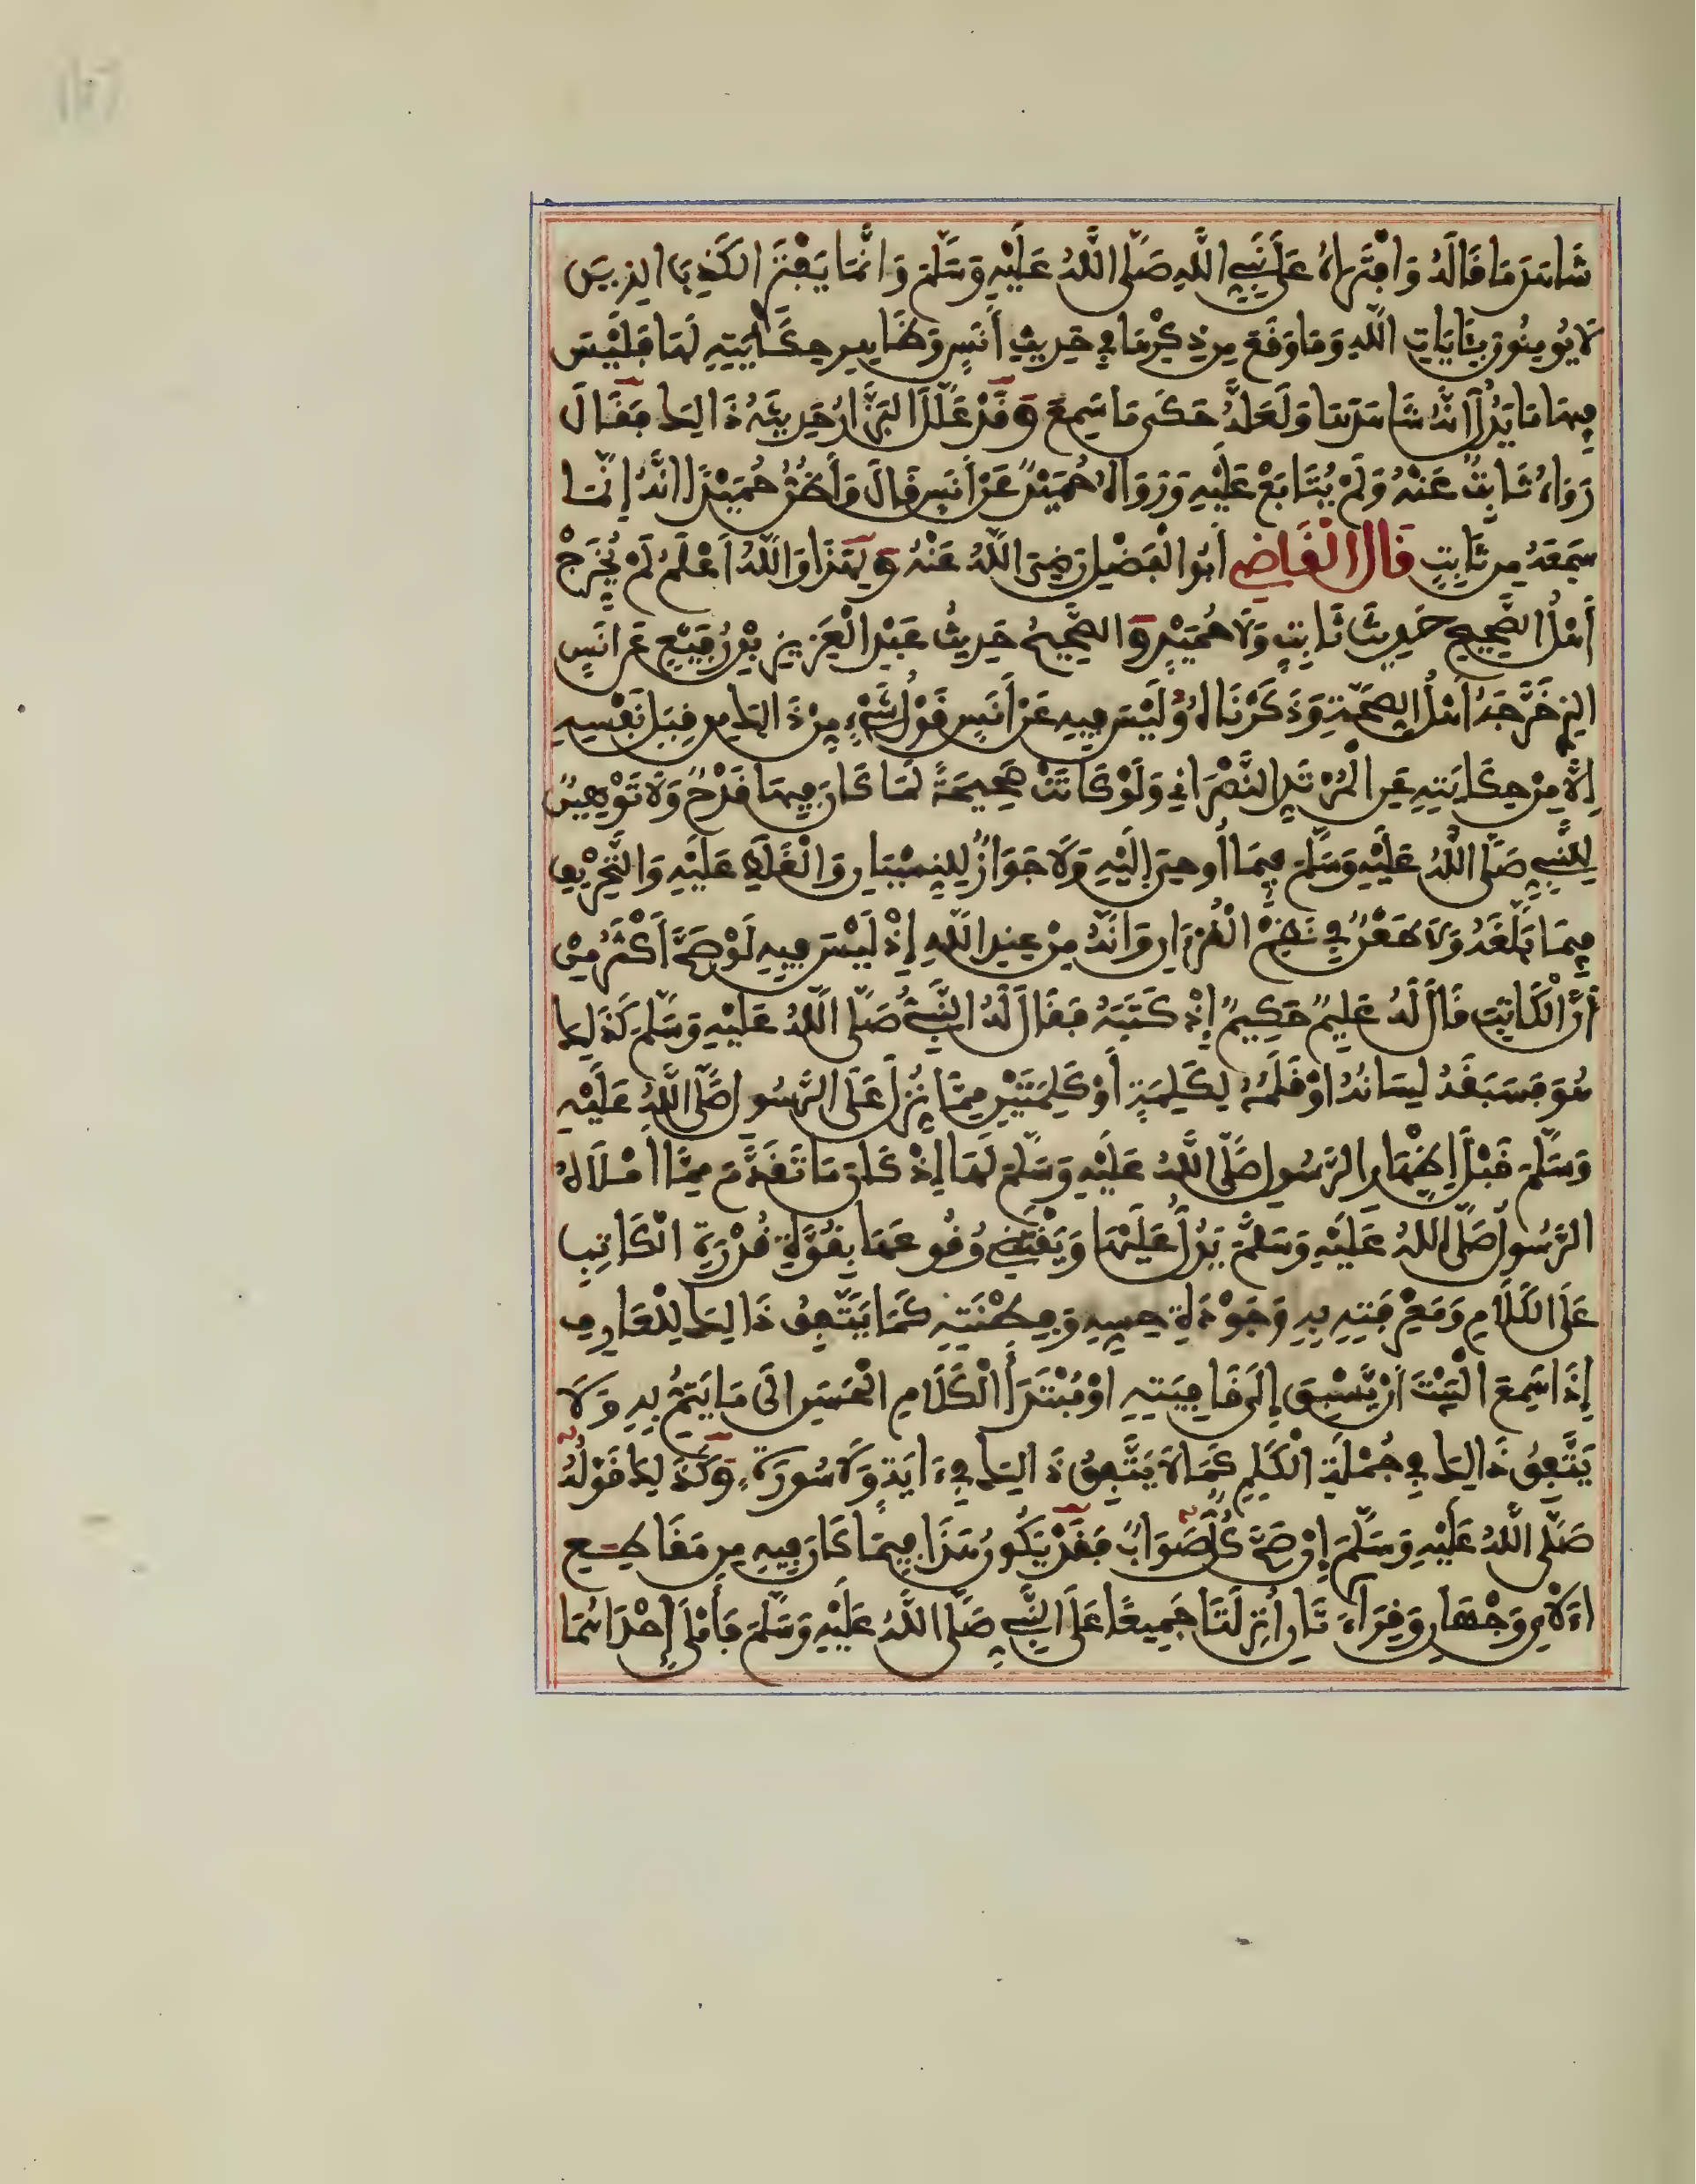 شَاهَدَ مَا قَالَهُ وَافْتَرَاهُ عَلَى نَبِيِّ اللَّهِ صَلَّى اللَّهُ عَلَيْهِ وَسَلَّمَ وَإِنَّمَا يَفْتَرِ الْكَذِبَ الذِينَ
لَا يُومِنُونَ بِئَايَاتِ اللَّهِ وَمَا وَقَعَ مِن ذِكْرِهَا فِي حَدِيثِ أَنَسٍ وَظَاهِرِ حِكَايَتِهِ لَهَا فَلَيْسَ
فِيهَا مَا يَدُلُّ أَنَّهُ شَاهَدَهَا وَلَعَلَّهُ حَكَى مَا سَمِعَ وَقَدْ عَلَّلَ الْبَزَّارُ حَدِيثَهُ ذَالِكَ فَقَالَ
رَوَاهُ ثَابِتٌ عَنْهُ وَلَمْ يُتَابَعْ عَلَيْهِ وَرَوَاهُ حُمَيْدٌ عَنْ أَنَسٍ قَالَ وَأَظُنُّ حُمَيْدًا أَنَّهُ إِنَّمَا
سَمِعَهُ مِن ثَابِتٍ قَالَ الْقَاضِي أَبُو الْفَضْلِ رَضِيَ اللَّهُ عَنْهُ وَلِهَذَا وَاللَّهُ أَعْلَمُ لَمْ يُخَرِّجْ
أَهْلُ الصَّحِيحِ حَدِيثَ ثَابِتٍ وَلَا حُمَيْدٍ وَالصَّحِيحُ حَدِيثُ عَبْدِ الْعَزِيزِ بْنِ رُفَيْعٍ عَن أَنَسٍ
الذِي خَرَّجَهُ أَهْلُ الصِّحَّةِ وَذَكَرْنَاهُ وَلَيْسَ فِيهِ عَنْ أَنَسٍ قَوْلُ شَيْءٍ مِنْ ذَالِكَ مِن قِبَلِ نَفْسِهِ
إِلَّا مِنْ حِكَايَتِهِ عَنِ الْمُرْتَدِّ النَّصْرَانِيِّ وَلَوْ كَانَتْ صَحِيحَةً لَمَا كَانَ فِيهَا قَدْحٌ وَلَا تَوْهِينٌ
لِلنَّبِيِّ صَلَّى اللَّهُ عَلَيْهِ وَسَلَّمَ فِيمَا أُوحِيَ إِلَيْهِ وَلَا جَوَازٌ لِلنِّسْيَانِ وَالْغَلَطِ عَلَيْهِ وَالتَّحْرِيفِ
فِيمَا بَلَّغَهُ وَلَا طَعْنٌ فِي نَظْمِ الْقُرْءَانِ وَأَنَّهُ مِنْ عِندِ اللَّهِ إِذْ لَيْسَ فِيهِ لَوْ صَحَّ أَكْثَرُ مِنْ
أَنَّ الْكَاتِبَ قَالَ لَهُ عَلِيمٌ حَكِيمٌ إِذْ كَتَبَهُ فَقَالَ لَهُ النَّبِيُّ صَلَّى اللَّهُ عَلَيْهِ وَسَلَّمَ كَذَلِكَ
هُوَ فَسَبَقَهُ لِسَانُهُ أَوْ قَلَمُهُ لِكَلِمَةٍ أَوْ كَلِمَتَيْنِ مِمَّا نُزِّلَ عَلَى الرَّسُولِ صَلَّى اللَّهُ عَلَيْهِ
وَسَلَّمَ قَبْلَ إِظْهَارِ الرَّسُولِ صَلَّى اللَّهُ عَلَيْهِ وَسَلَّمَ لَهَا إِذْ كَانَ مَا تَقَدَّمَ مِمَّا أَمْلَاهُ
الرَّسُولُ صَلَّى اللَّهُ عَلَيْهِ وَسَلَّمَ يَدُلُّ عَلَيْهَا وَيَقْتَضِي وُقُوعَهَا بِقُوَّةِ قُدْرَةِ الْكَاتِبِ
عَلَى الْكَلَامِ وَمَعْرِفَتِهِ بِهِ وَجَوْدَةِ حِسِّهِ وَفِطْنَتِهِ كَمَا يَتَّفِقُ ذَالِكَ لِلْعَارِفِ
إِذَا سَمِعَ الْبَيْتَ أَنْ يَّسْبِقَ إِلَى قَافِيَتِهِ أَوْ مُبْتَدَأَ الْكَلَامِ الْحَسَنِ إِلَى مَا يَتِمُّ بِهِ وَلَا
يَتَّفِقُ ذَالِكَ فِي جُمْلَةِ الْكَلِمِ كَمَا لَا يَتَّفِقُ ذَالِكَ فِي ءَايَةٍ وَلَا سُورَةٍ وَكَذَلِكَ قَوْلُهُ
صَلَّى اللَّهُ عَلَيْهِ وَسَلَّمَ إِنْ صَحَّ كُلٌّ صَوَابٌ فَقَدْ يَكُونُ هَذَا فِيمَا كَانَ فِيهِ مِن مَقَاطِعِ
الْآيِ وَجْهَانِ وَقِرَاءَتَانِ أُنْزِلَتَا جَمِيعًا عَلَى النَّبِيِّ صَلَّى اللَّهُ عَلَيْهِ وَسَلَّمَ فَأَمْلَى إِحْدَاهُمَا